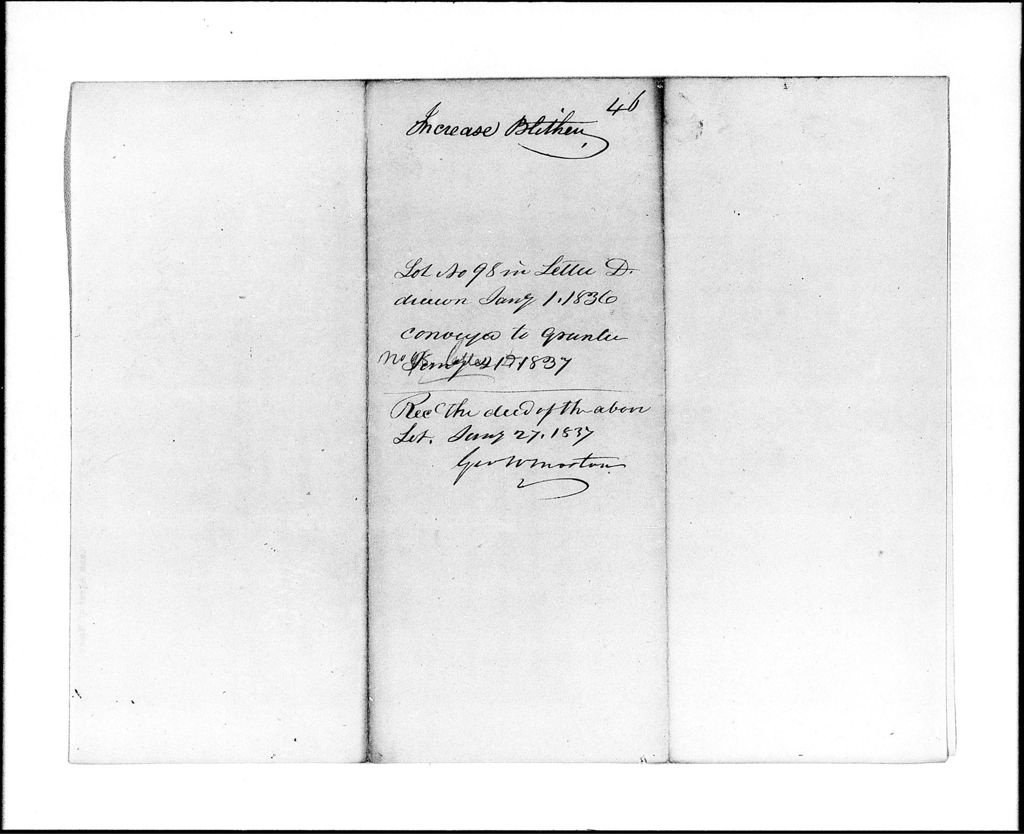 46
Increase Blithen
Lot No 98 in Letter D.
drawn Jany 1. 1836
conveyed to Grantee
No 98 Letter D
Jany 21 1837
Recd the deed of the above
Lot. Jany 27. 1837
Geo W Morton